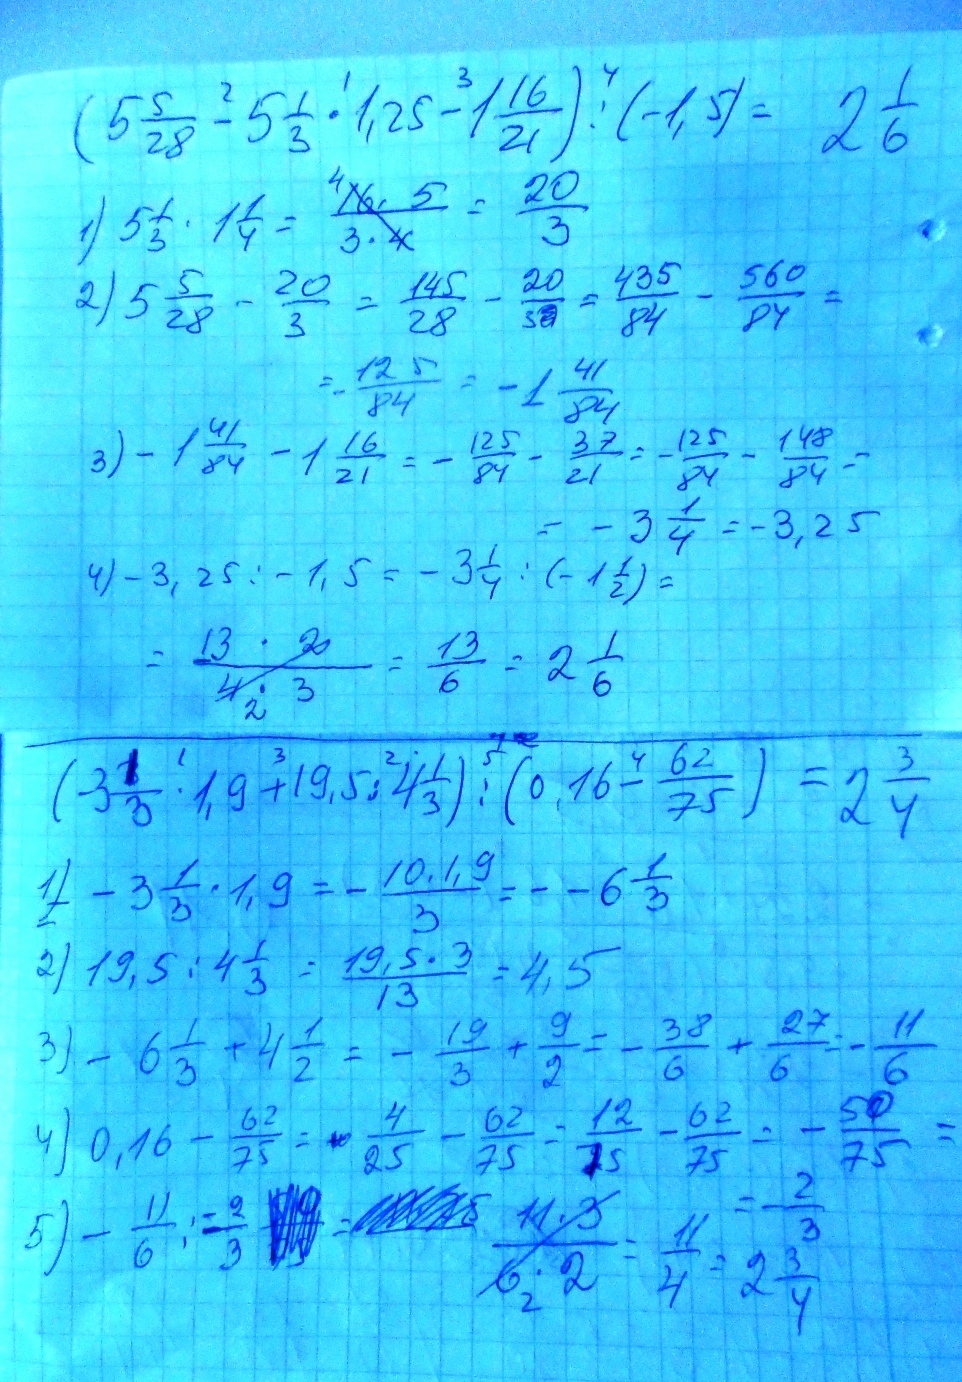 (5 5/28 - 5 1/3 · 1,25 - 1 16/21) : (-1,5) = 2 1/6
1) 5 1/3 · 1 1/4 = 16 · 5 / 3 · 4 = 20/3
2) 5 5/28 - 20/3 = 145/28 - 20/3 = 435/84 - 560/84 =
= - 125/84 = - 1 41/84
3) - 1 41/84 - 1 16/21 = - 125/84 - 37/21 = - 125/84 - 148/84 =
= - 3 1/4 = - 3,25
4) - 3,25 : - 1,5 = - 3 1/4 : (- 1 1/2) =
= 13 · 2 / 4 · 3 = 13/6 = 2 1/6
(3 1/3 · 1,9 + 19,5 : 4 1/3) : (0,16 - 62/75) = 2 3/4
1) - 3 1/3 · 1,9 = - 10 · 1,9 / 3 = - - 6 1/3
2) 19,5 : 4 1/3 = 19,5 · 3 / 13 = 4,5
3) - 6 1/3 + 4 1/2 = - 19/3 + 9/2 = - 38/6 + 27/6 = - 11/6
4) 0,16 - 62/75 = 4/25 - 62/75 = 12/75 - 62/75 = - 50/75 =
= - 2/3
5) - 11/6 : - 2/3 = 11 · 3 / 6 · 2 = 11/4 = 2 3/4